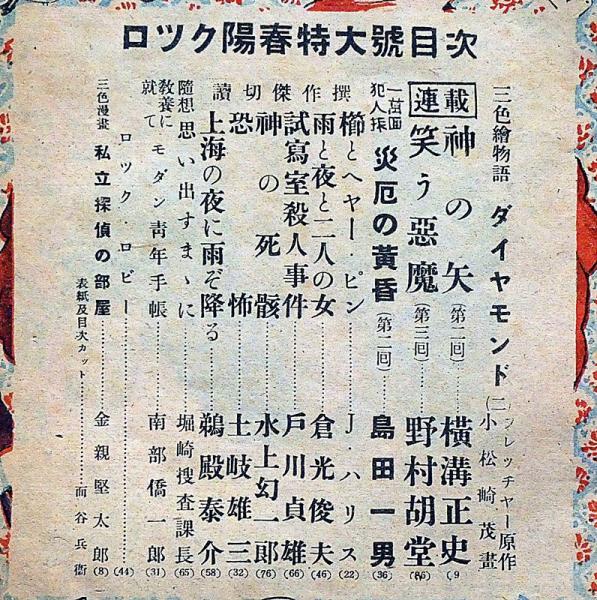 ロツク陽春特大號目次
三色繪物語 ダイヤモンド(二) フレッチャー原作 小松崎茂畫
連載 神の矢(第二回) 橫溝正史(9)
笑う惡魔(第三回) 野村胡堂(85)
一萬圓犯人探 災厄の黃昏(第二回) 島田一男(36)
讀切傑作撰
櫛とヘヤー・ピン J・ハリス(22)
雨と夜と二人の女 倉光俊夫(46)
試寫室殺人事件 戶川貞雄(66)
神の死骸 水上幻一郎(76)
恐怖 土岐雄三(32)
上海の夜に雨ぞ降る 鵜殿泰介(58)
隨想 思い出すまゝに 堀崎搜査課長(65)
敎養に就て モダン靑年手帳 南部僑一郎(31)
ロック・ロビー (44)
三色漫畫 私立探偵の部屋 金親堅太郎(8)
表紙及目次カット 面谷兵衞